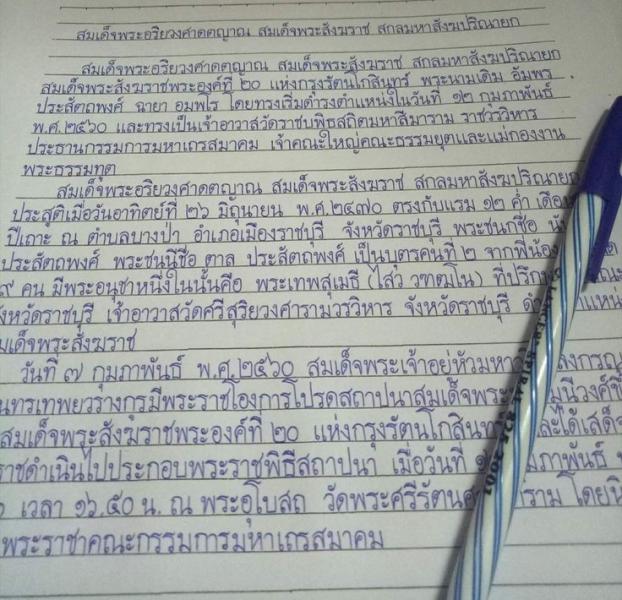 สมเด็จพระอริยวงศาคตญาณ สมเด็จพระสังฆราช สกลมหาสังฆปริณายก
สมเด็จพระอริยวงศาคตญาณ สมเด็จพระสังฆราช สกลมหาสังฆปริณายก
สมเด็จพระสังฆราชพระองค์ที่ ๒๐ แห่งกรุงรัตนโกสินทร์ พระนามเดิม อัมพร
ประสัตถพงศ์ ฉายา อมฺพโร โดยทรงเริ่มดำรงตำแหน่งในวันที่ ๑๒ กุมภาพันธ์
พ.ศ.๒๕๖๐ และทรงเป็นเจ้าอาวาสวัดราชบพิธสถิตมหาสีมาราม ราชวรวิหาร
ประธานกรรมการมหาเถรสมาคม เจ้าคณะใหญ่คณะธรรมยุตและแม่กองงาน
พระธรรมทูต
สมเด็จพระอริยวงศาคตญาณ สมเด็จพระสังฆราช สกลมหาสังฆปริณายก
ประสูติเมื่อวันอาทิตย์ที่ ๒๖ มิถุนายน พ.ศ.๒๔๗๐ ตรงกับแรม ๑๒ ค่ำ เดือน
ปีเถาะ ณ ตำบลบางป่า อำเภอเมืองราชบุรี จังหวัดราชบุรี พระชนกชื่อ
ประสัตถพงศ์ พระชนนีชื่อ ตาล ประสัตถพงศ์ เป็นบุตรคนที่ ๒ จากพี่น้อง
๙ คน มีพระอนุชาหนึ่งในนั้นคือ พระเทพสุเมธี (ไสว วฑฺฒโน) ที่
จังหวัดราชบุรี เจ้าอาวาสวัดศรีสุริยวงศารามวรวิหาร จังหวัดราชบุรี
สมเด็จพระสังฆราช
วันที่ ๗ กุมภาพันธ์ พ.ศ.๒๕๖๐ สมเด็จพระเจ้าอยู่หัว
นทรเทพยวรางกูรมีพระราชโองการโปรดสถาปนาสมเด็จพระ
สมเด็จพระสังฆราชพระองค์ที่ ๒๐ แห่งกรุงรัตนโกสินทร์ และได้เสด็จ
ราชดำเนินไปประกอบพระราชพิธีสถาปนา เมื่อวันที่
เวลา ๑๖.๕๐ น. ณ พระอุโบสถ วัดพระศรีรัตน โดย
พระราชาคณะกรรมการมหาเถรสมาคม